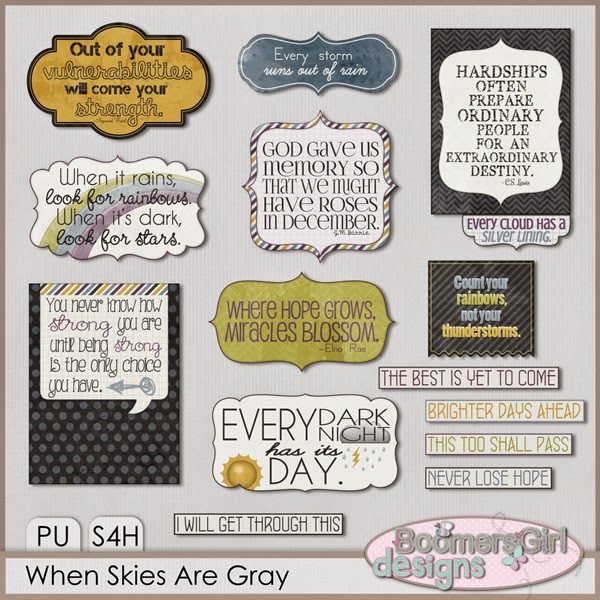 Out of your
vulnerabilities
will come your
strength.
-Sigmund Freud
Every storm
runs out of rain
HARDSHIPS
OFTEN
PREPARE
ORDINARY
PEOPLE
FOR AN
EXTRAORDINARY
DESTINY.
- C.S. Lewis
EVERY CLOUD HAS A
SILVER LINING.
When it rains,
look for rainbows.
When it's dark,
look for stars.
GOD GAVE US
MEMORY SO
THAT WE MIGHT
HAVE ROSES
IN DECEMBER.
J.M. Barrie
You never know how
strong you are
until being strong
is the only choice
you have.
WHERE HOPE GROWS,
MIRACLES BLOSSOM.
-Elna Rae
Count your
rainbows,
not your
thunderstorms.
THE BEST IS YET TO COME
BRIGHTER DAYS AHEAD
THIS TOO SHALL PASS
NEVER LOSE HOPE
EVERY DARK
NIGHT
has its
DAY.
I WILL GET THROUGH THIS
PU S4H
When Skies Are Gray
BoomersGirl
designs